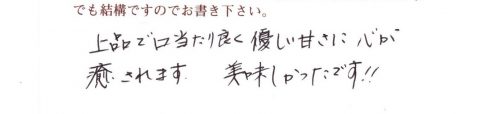 でも結構ですのでお書き下さい。
上品で口当たり良く優しい甘さに心が
癒されます 美味しかったです!!